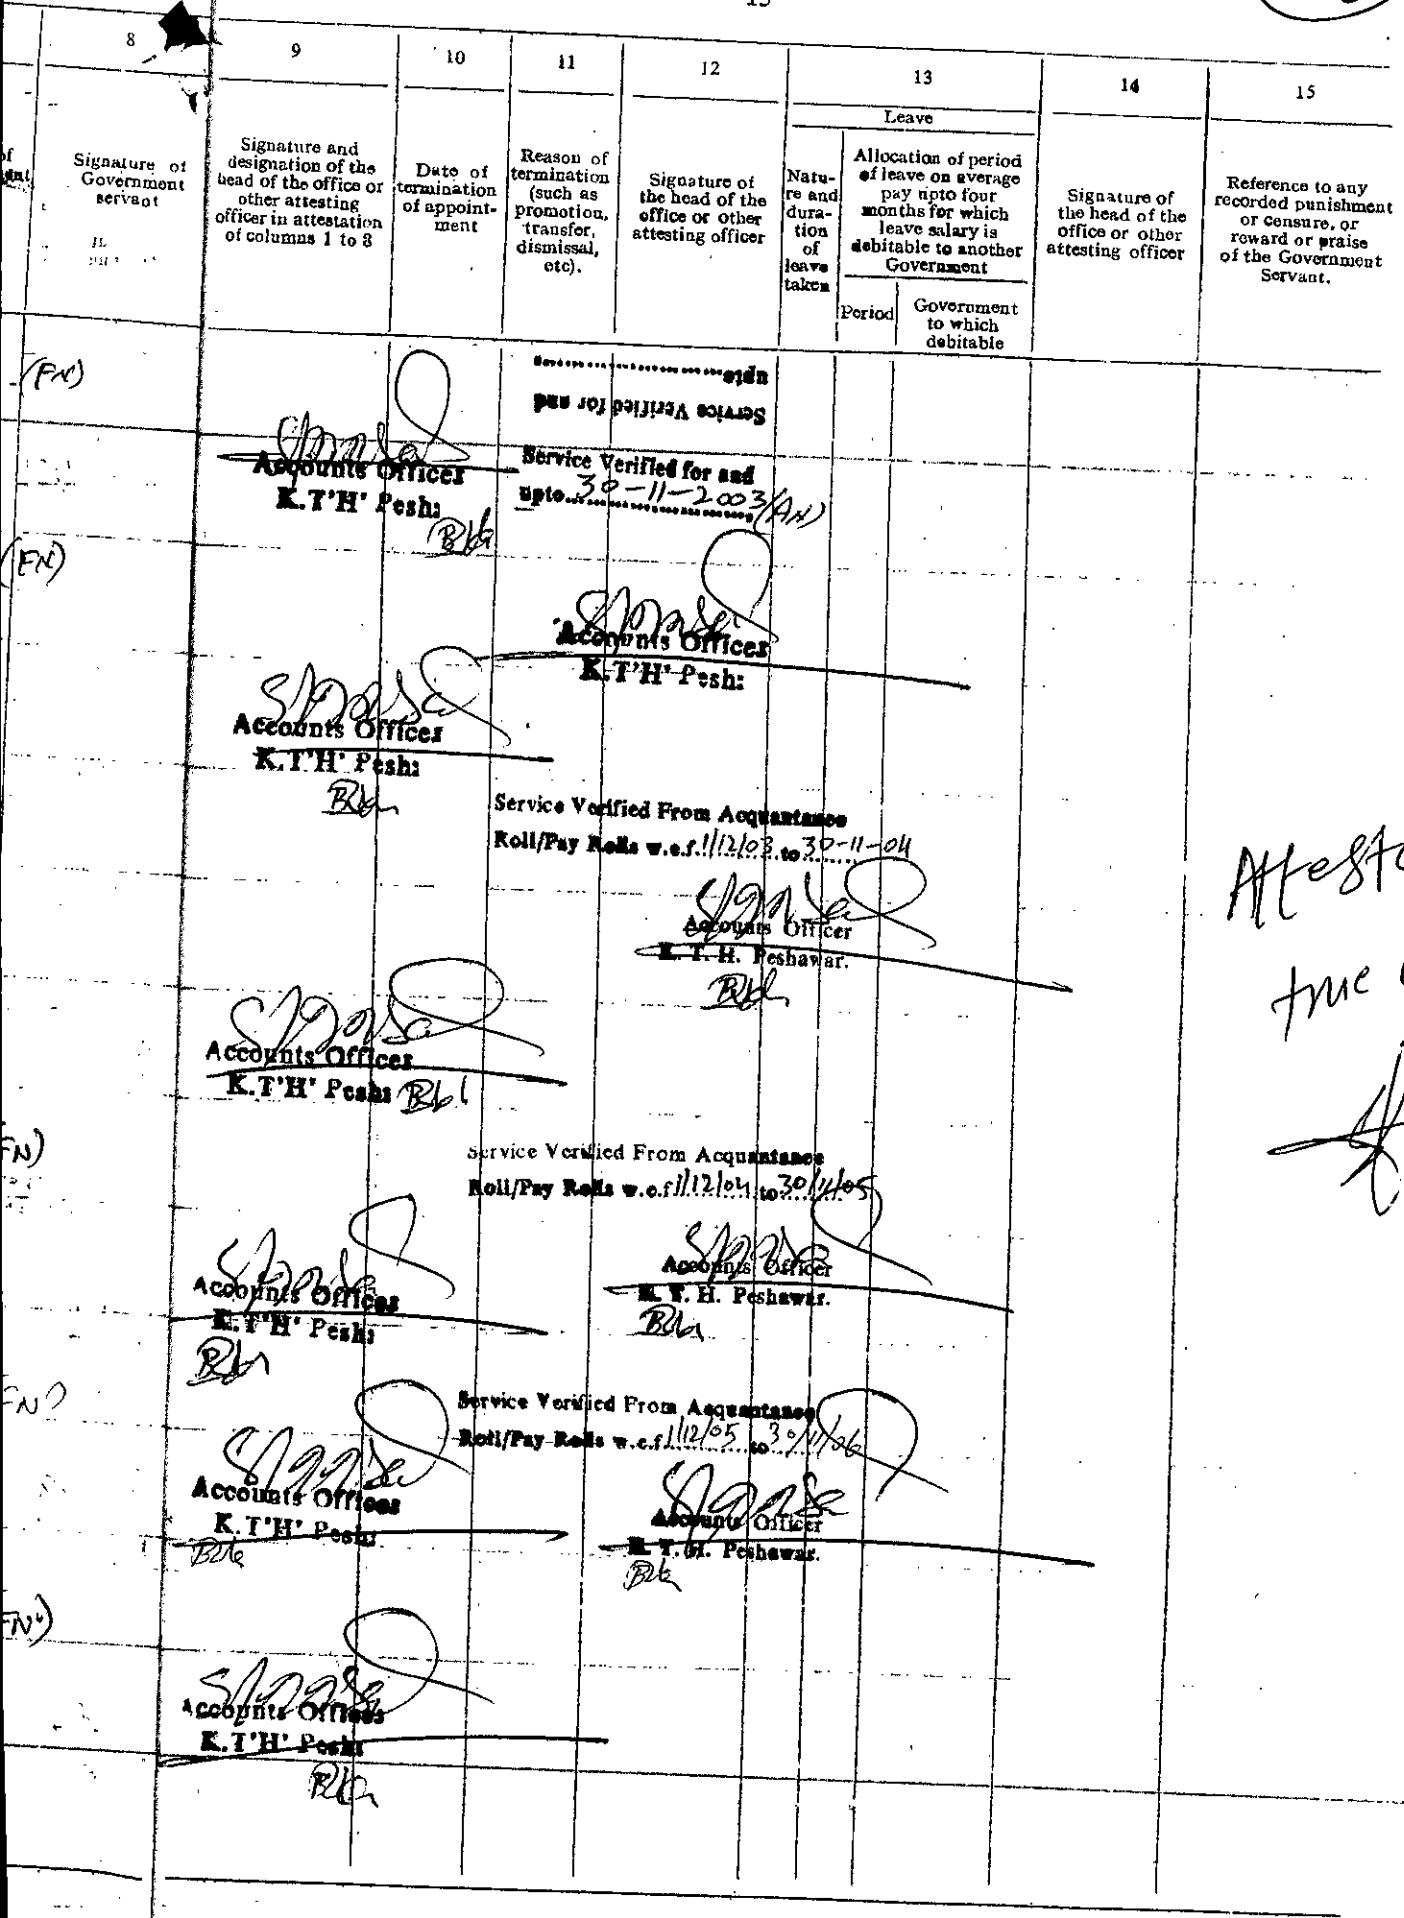 15
8
9
10
11
12
13
14
15
Leave
Signature of
Government
servant
Signature and
designation of the
head of the office or
other attesting
officer in attestation
of columns 1 to 8
Date of
termination
of appoint-
ment
Reason of
termination
(such as
promotion,
transfer,
dismissal,
etc).
Signature of
the head of the
office or other
attesting officer
Natu-
re and
dura-
tion
of
leave
taken
Allocation of period
of leave on average
pay upto four
months for which
leave salary is
debitable to another
Government
Period
Government
to which
debitable
Signature of
the head of the
office or other
attesting officer
Reference to any
recorded punishment
or censure, or
reward or praise
of the Government
Servant.
(FN)
Service Verified for and
upto
Accounts Officer
K.T'H' Pesh:
Service Verified for and
upto 30-11-2003 (AN)
(FN)
Accounts Officer
K.T'H' Pesh:
Accounts Officer
K.T'H' Pesh:
Service Verified From Acquantance
Roll/Pay Rolls w.e.f. 1/12/03 to 30-11-04
Accounts Officer
K. T. H. Peshawar.
true
Accounts Officer
K.T'H' Pesh:
FN)
Service Verified From Acquantance
Roll/Pay Rolls w.e.f 1/12/04 to 30/11/05
Accounts Officer
K. T. H. Peshawar.
Accounts Officer
K.T'H' Pesh:
FN)
Service Verified From Acquantance
Roll/Pay Rolls w.e.f 1/12/05 to 30/11/06
Accounts Officer
K.T'H' Pesh:
Accounts Officer
K. T. H. Peshawar.
FN)
Accounts Officer
K.T'H' Pesh: